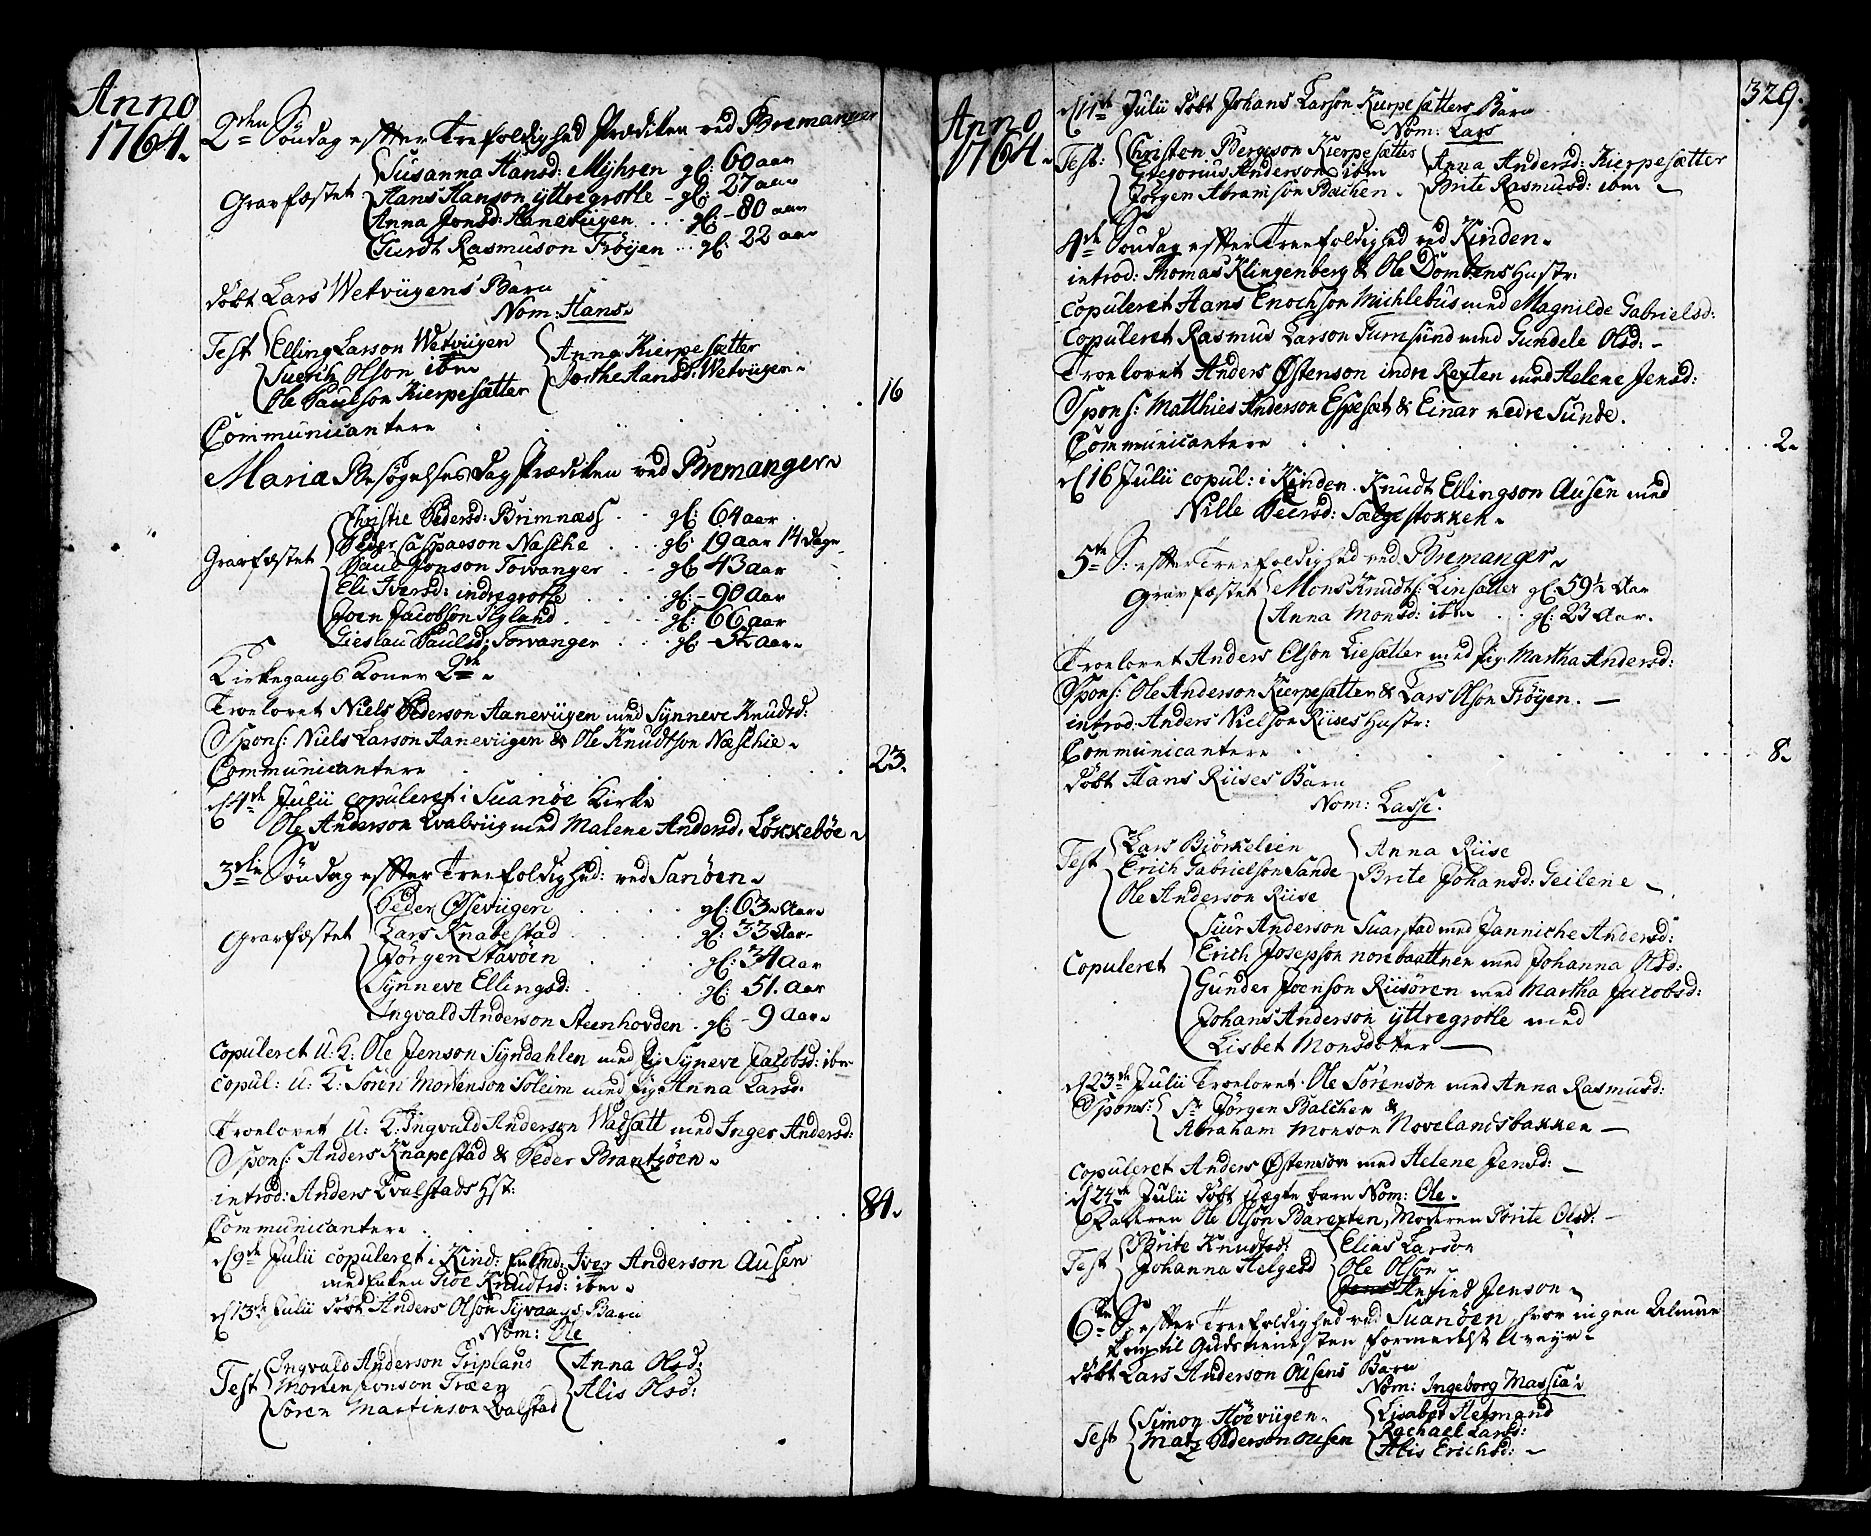 Anno
1764.
2den Søndag effter Trefoldighed Prædiken ved Bremanger
Gravfæstet
Susanna Hansd: Mÿhren gl: 60 aar
Hans Hanson ÿttregrotle - gl: 27 aar
Anna Jonsd: Haneviigen . . gl: - 80 aar
Giurdt Rasmuson Frøÿen .. gl: 22 aar
døbt Lars Wetviigens Barn
Nom: Hans.
Test
Elling Larson Wetviigen
Siurih Olson ibm
Ole Paulson Kierpesætter
Anna Kierpesætter
Dorthe Hansd: Wetviigen.
Communicantere . . . 16
Maria Besøgelses Dag Prædiken ved Bremanger.
Gravfæstet
Christie Pedersd: Brimnæss . . gl: 64 aar
Peder Casparson Nasche . . gl: 19 aar 14 dage
Paul Jonson Torvanger . . gl: 43 aar
Eli Iversd: indregrotle . . . gl: - 90 aar
Joen Jacobson Rÿland . . . gl: 66 aar
Lieslau Paulsd: Torvanger . . gl: - 54 aar.
Kirkegangs Koner 2de.
Troelovet Niels Pederson Aaneviigen med Sÿnneve Knudsd:
Spons: Niels Larson Aaneviigen & Ole Knudtson Næschie.
Communicantere . . . 23.
d 4de Julii copuleret i Suanøe Kirke
Ole Anderson Qvalviig med Malene Andersd: Løkkebøe.
3die Søndag effter Treefoldighed: ved Sanøen.
Gravfæstet
Peder Oseviigen . . . gl: 63. Aar.
Lars Knapestad . . . gl: 33 Aar.
Jørgen Stavøen . . . gl: 34 Aar
Sÿnneve Ellingsd: . . . gl: 51. Aar
Ingvald Anderson Steenhovden . gl: - 9 Aar.
Copuleret U: K: Ole Jenson Sÿndahlen med Pig Sÿneve Jacobsd: ibm
Copul: U: K: Søren Mortenson Soleim med Pige Anna Larsd.
Troelovet U: K: Ingvald Anderson Wadsætt med Inger Andersd:
Spons: Anders Knapestad & Peder Brantzøen.
introd: Anders Qvalstads Hst:
Communicantere . . . 84.
d 9de Julii copuleret i Kind: Enkmd: Iver Anderson Ausen
med Enken Knudtsd: ibm.
d 13de Julii døbt Anders Olson Barn
Nom: Ole
Test
Ingvald Anderson Gripland
Morten Jonson Træen
Søren Martinson Qvalstad
Anna Olsd:
Alis Olsd:
Anno
1764.
329.
d 11te Julii døbt Johans Larson Kierpesætters Barn
Nom: Lars
Test:
Christen Bergeson Kierpesætter
Gregorius Anderson ibm
Jørgen Abramson Balchen.
Anna Andersd: Kierpesætter
Brite Rasmusd: ibm
4de Søndag effter Treefoldighed ved Kinden.
introd: Thomas Klingenberg & Ole Dombens Hustr:
Copuleret Hans Enochson Michlebus med Magnilde Gabrielsd:
Copuleret Rasmus Larson Furresund med Gundele Olsd: -
Troelovet Anders Østenson indre Rexten med Helene Jensd:
Spons: Matthies Anderson Espesæt & Einar nedre Sunde.
Communicantere . . . 2.
d 16 Julii copul: i Kinden. Knudt Ellingson Ausen med
Nille Peersd: Sælgestokken.
5te S: effter Treefoldighed ved Bremanger.
Gravfæstet
Mons Knudts: Linsætter gl: 59½ Aar
Anna Monsd: ibm . . gl: 23 Aar.
Troelovet Anders Olson Liesætter med Pig. Martha Andersd:
Spons: Ole Anderson Kierpesætter & Lars Olson Frøÿen. -
introd. Anders Nielson Riises Hustr:
Communicantere . . . 8.
døbt Hans Riises Barn
Nom: Lasse.
Test
Lars Biørkelien
Erich Gabrielson Sande
Ole Anderson Riise
Anna Riise
Brite Johansd: Geilene
Copuleret
Siur Anderson Suarstad med Janniche Andersd:
Erich Josepson nordbaattnen med Johanna Olsd:
Gunder Joenson Riisøren med Martha Jacobsd:
Johans Anderson ÿttregrotle med
Lisbet Monsdotter
d 23de Julii Troelovet Ole Sørenson med Anna Rasmusd:
Spons:
Sr Jørgen Balchen &
Abraham Monson Hovelandsbakken -
Copuleret Anders Østenson med Helene Jensd: -
d 24de Julii døbt uægte barn Nom: Ole.
Faderen Ole Olson Barexten, Moderen Brite Olsd: -
Test
Brite Knudtsd:
Johanna Helgesd
Elias Larson
Ole Olson
Jens Anfind Jenson.
6te S: effter Treefoldighed ved Suanøen, hvor ingen Almue
kom til Gudstienesten formedelst Uveÿr.
døbt Lars Anderson Ousens Barn
Nom: Ingeborg Massia.
Test
Simon Høeviigen.
Matz Pederson Ousen
Lisabet Helmand
Rachael Larsd:
Alis Erichsd: